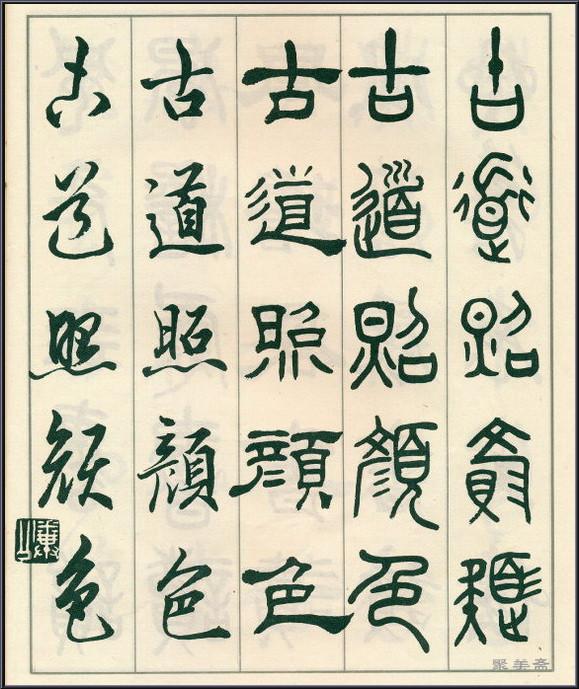 古道照顔色
古道照顔色
古道照顔色
古道照顔色
古道照顔色
聚美斋